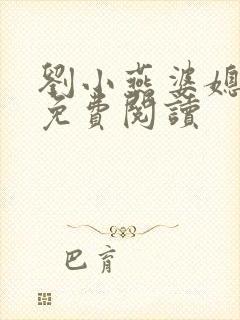 劉小燕婆媳
免費閱讀
巴育